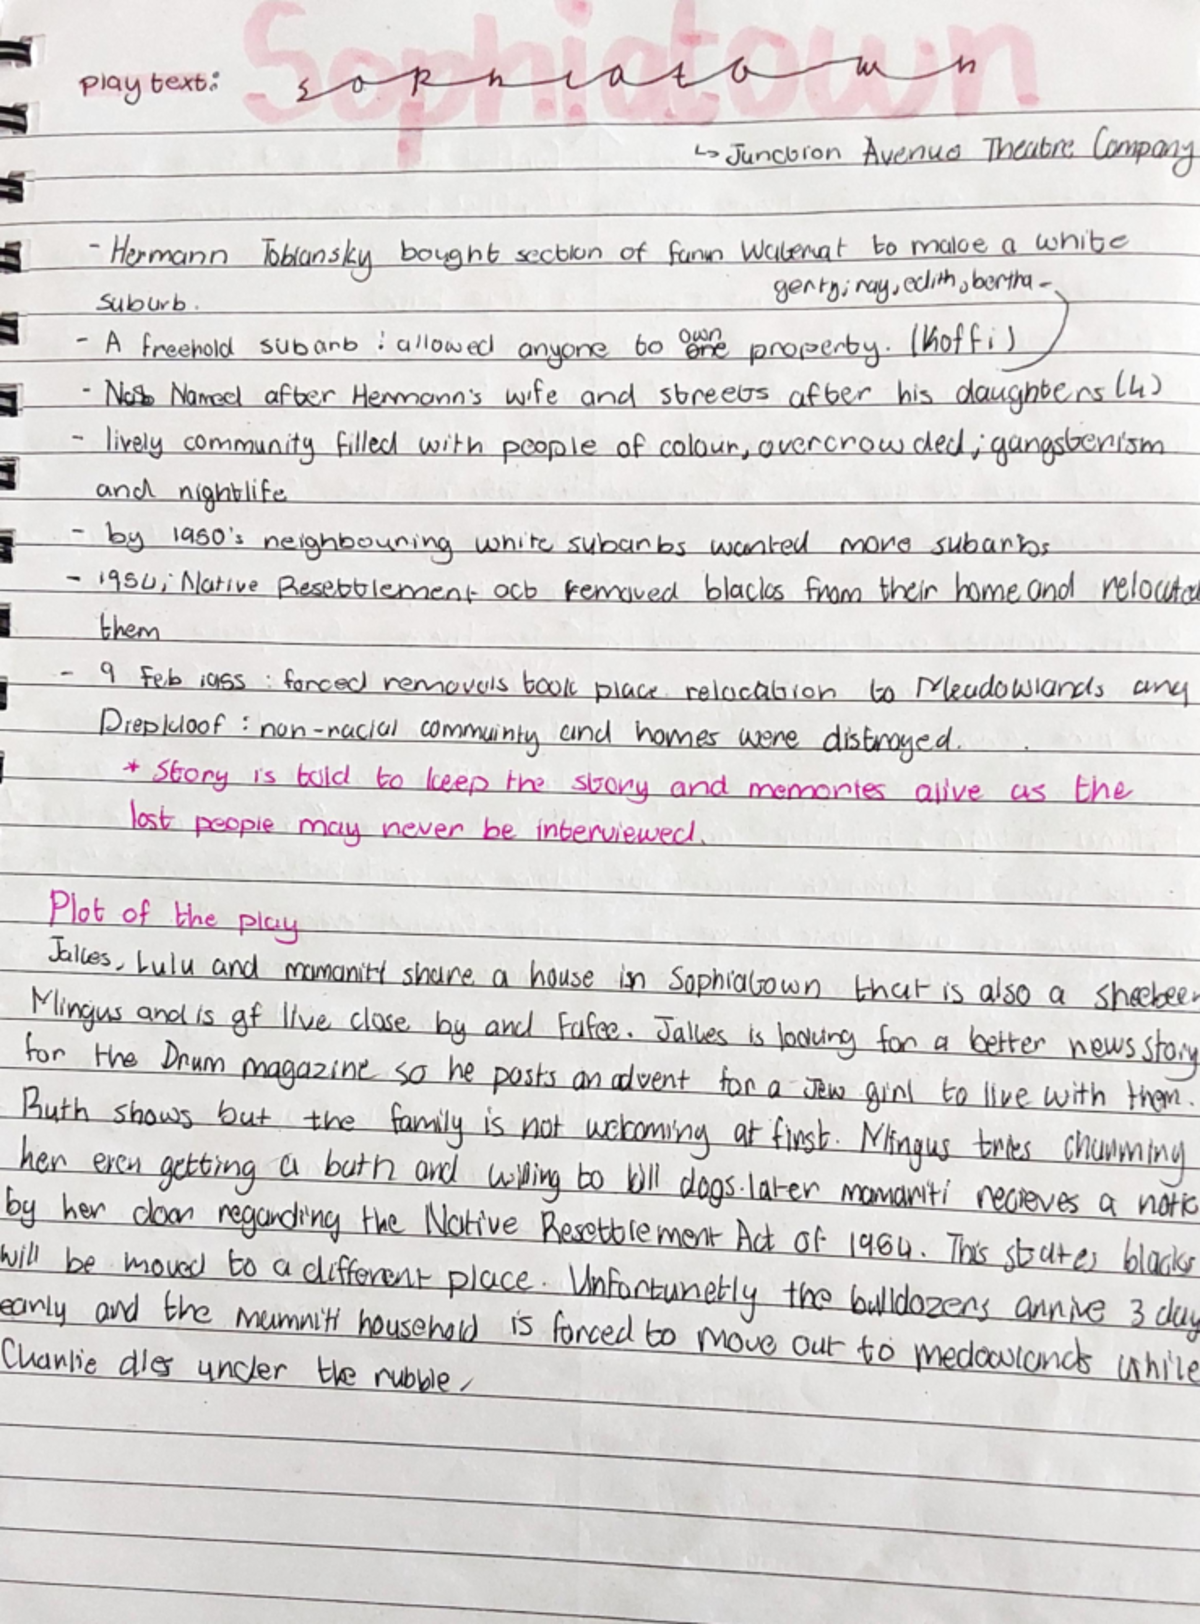 Sophiatown
play text: sophiatown
↳ Junction Avenue Theatre Company
- Hermann Tobiansky bought section of farm Waterval to make a white
gerty, ray, edith, bertha -
suburb.
- A freehold suburb : allowed anyone to own one property. (Koffi)
- Not Named after Hermann's wife and streets after his daughters (4)
- lively community filled with people of colour, overcrowded, gangsterism
and nightlife
- by 1950's neighbouring white suburbs wanted more suburbs
- 1954, Native Resettlement act removed blacks from their home and relocated
them
- 9 Feb 1955 : forced removals took place relocation to Meadowlands and
Diepkloof : non-racial commuinty and homes were distroyed.
* Story is told to keep the story and memories alive as the
last people may never be interviewed.
Plot of the play
Jakes, Lulu and mamariti share a house in Sophiatown that is also a sheebeen
Mingus and is gf live close by and Fafee. Jakes is looking for a better news story
for the Drum magazine so he posts an advert for a Jew girl to live with them.
Ruth shows but the family is not welcoming at first. Mingus tries charming
her even getting a bath and willing to kill dogs. later mamariti recieves a notic
by her door regarding the Native Resettlement Act of 1954. This states blacks
will be moved to a different place. Unfortunetly the bulldozers arrive 3 day
early and the mamriti household is forced to move out to medowlands while
Charlie dies under the rubble.